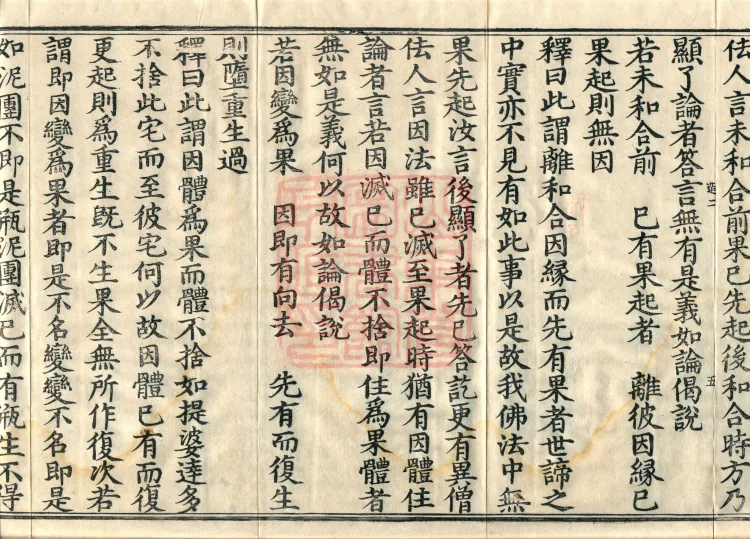 佉人言未和合前果已先起後和合時方乃
顯了論者答言無有是義如論偈說
若未和合前　已有果起者　離彼因緣已
果起則無因
釋曰此謂離和合因緣而先有果者世諦之
中實亦不見有如此事以是故我佛法中無
果先起汝言後顯了者先已答訖更有異僧
佉人言因法雖已滅至果起時猶有因體住
論者言若因滅已而體不捨即住為果體者
無如是義何以故如論偈說
若因變為果　因即有向去　先有而復生
則墮重生過
釋曰此謂因體為果而體不捨如提婆達多
不捨此宅而至彼宅何以故因體已有而復
更起則為重生既不生果全無所作復次若
謂即因變為果者即是不名變變不名即是
如泥團不即是瓶泥團滅已而有瓶生不得
五